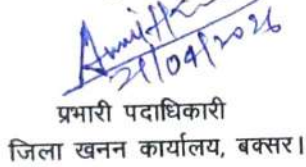 21/04/2026
प्रभारी पदाधिकारी
जिला खनन कार्यालय, बक्सर।